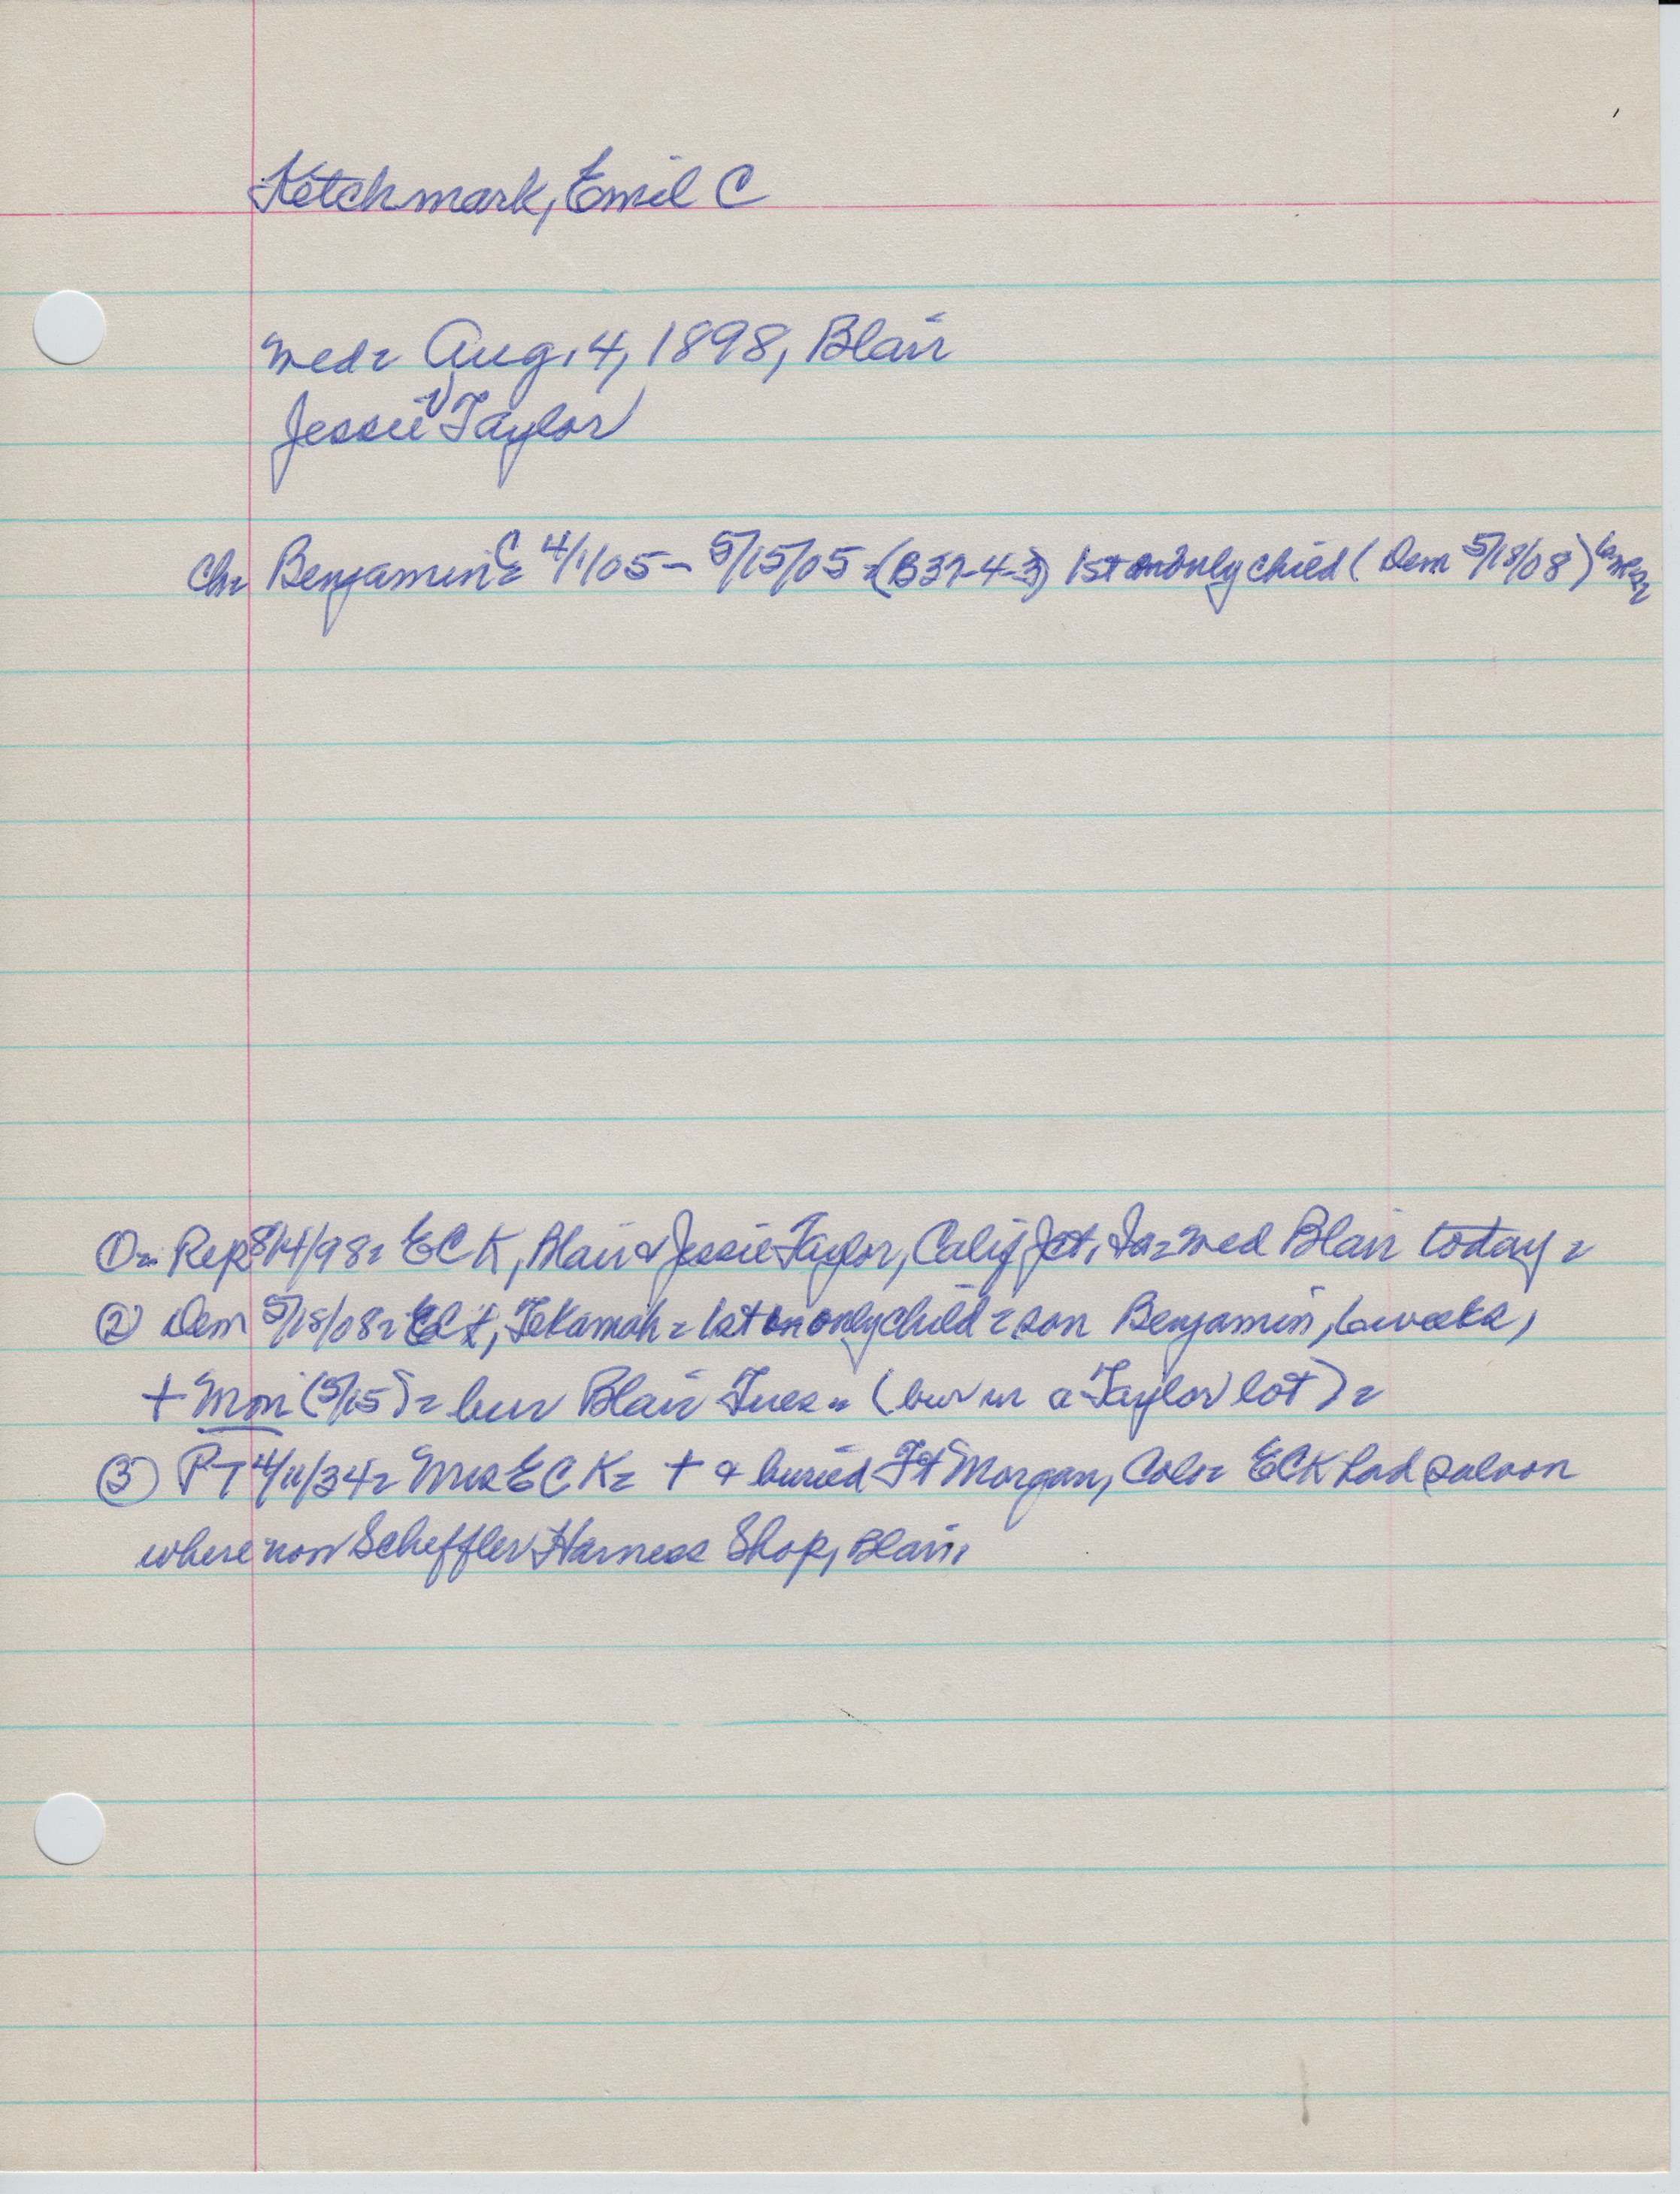 Ketchmark, Emil C
med= Aug. 4, 1898, Blair
Jessie Taylor
Ch= Benjamin C= 4/1/05 - 5/15/05 = (B37-4-3) 1st only child (Dem 5/18/08)
①= Rep 8/4/98= ECK, Blair & Jessie Taylor, Calif Jct, Ia= med Blair today=
② Dem 5/18/08= Tekamah= 1st only child= son Benjamin, 6 weeks,
+ Mon (5/15)= bur Blair Tues= (bur in a Taylor lot)=
③ PT 4/11/34= Mrs ECK= + & buried Ft Morgan, Colo= ECK had saloon
where now Scheffler Harness Shop, Blair.